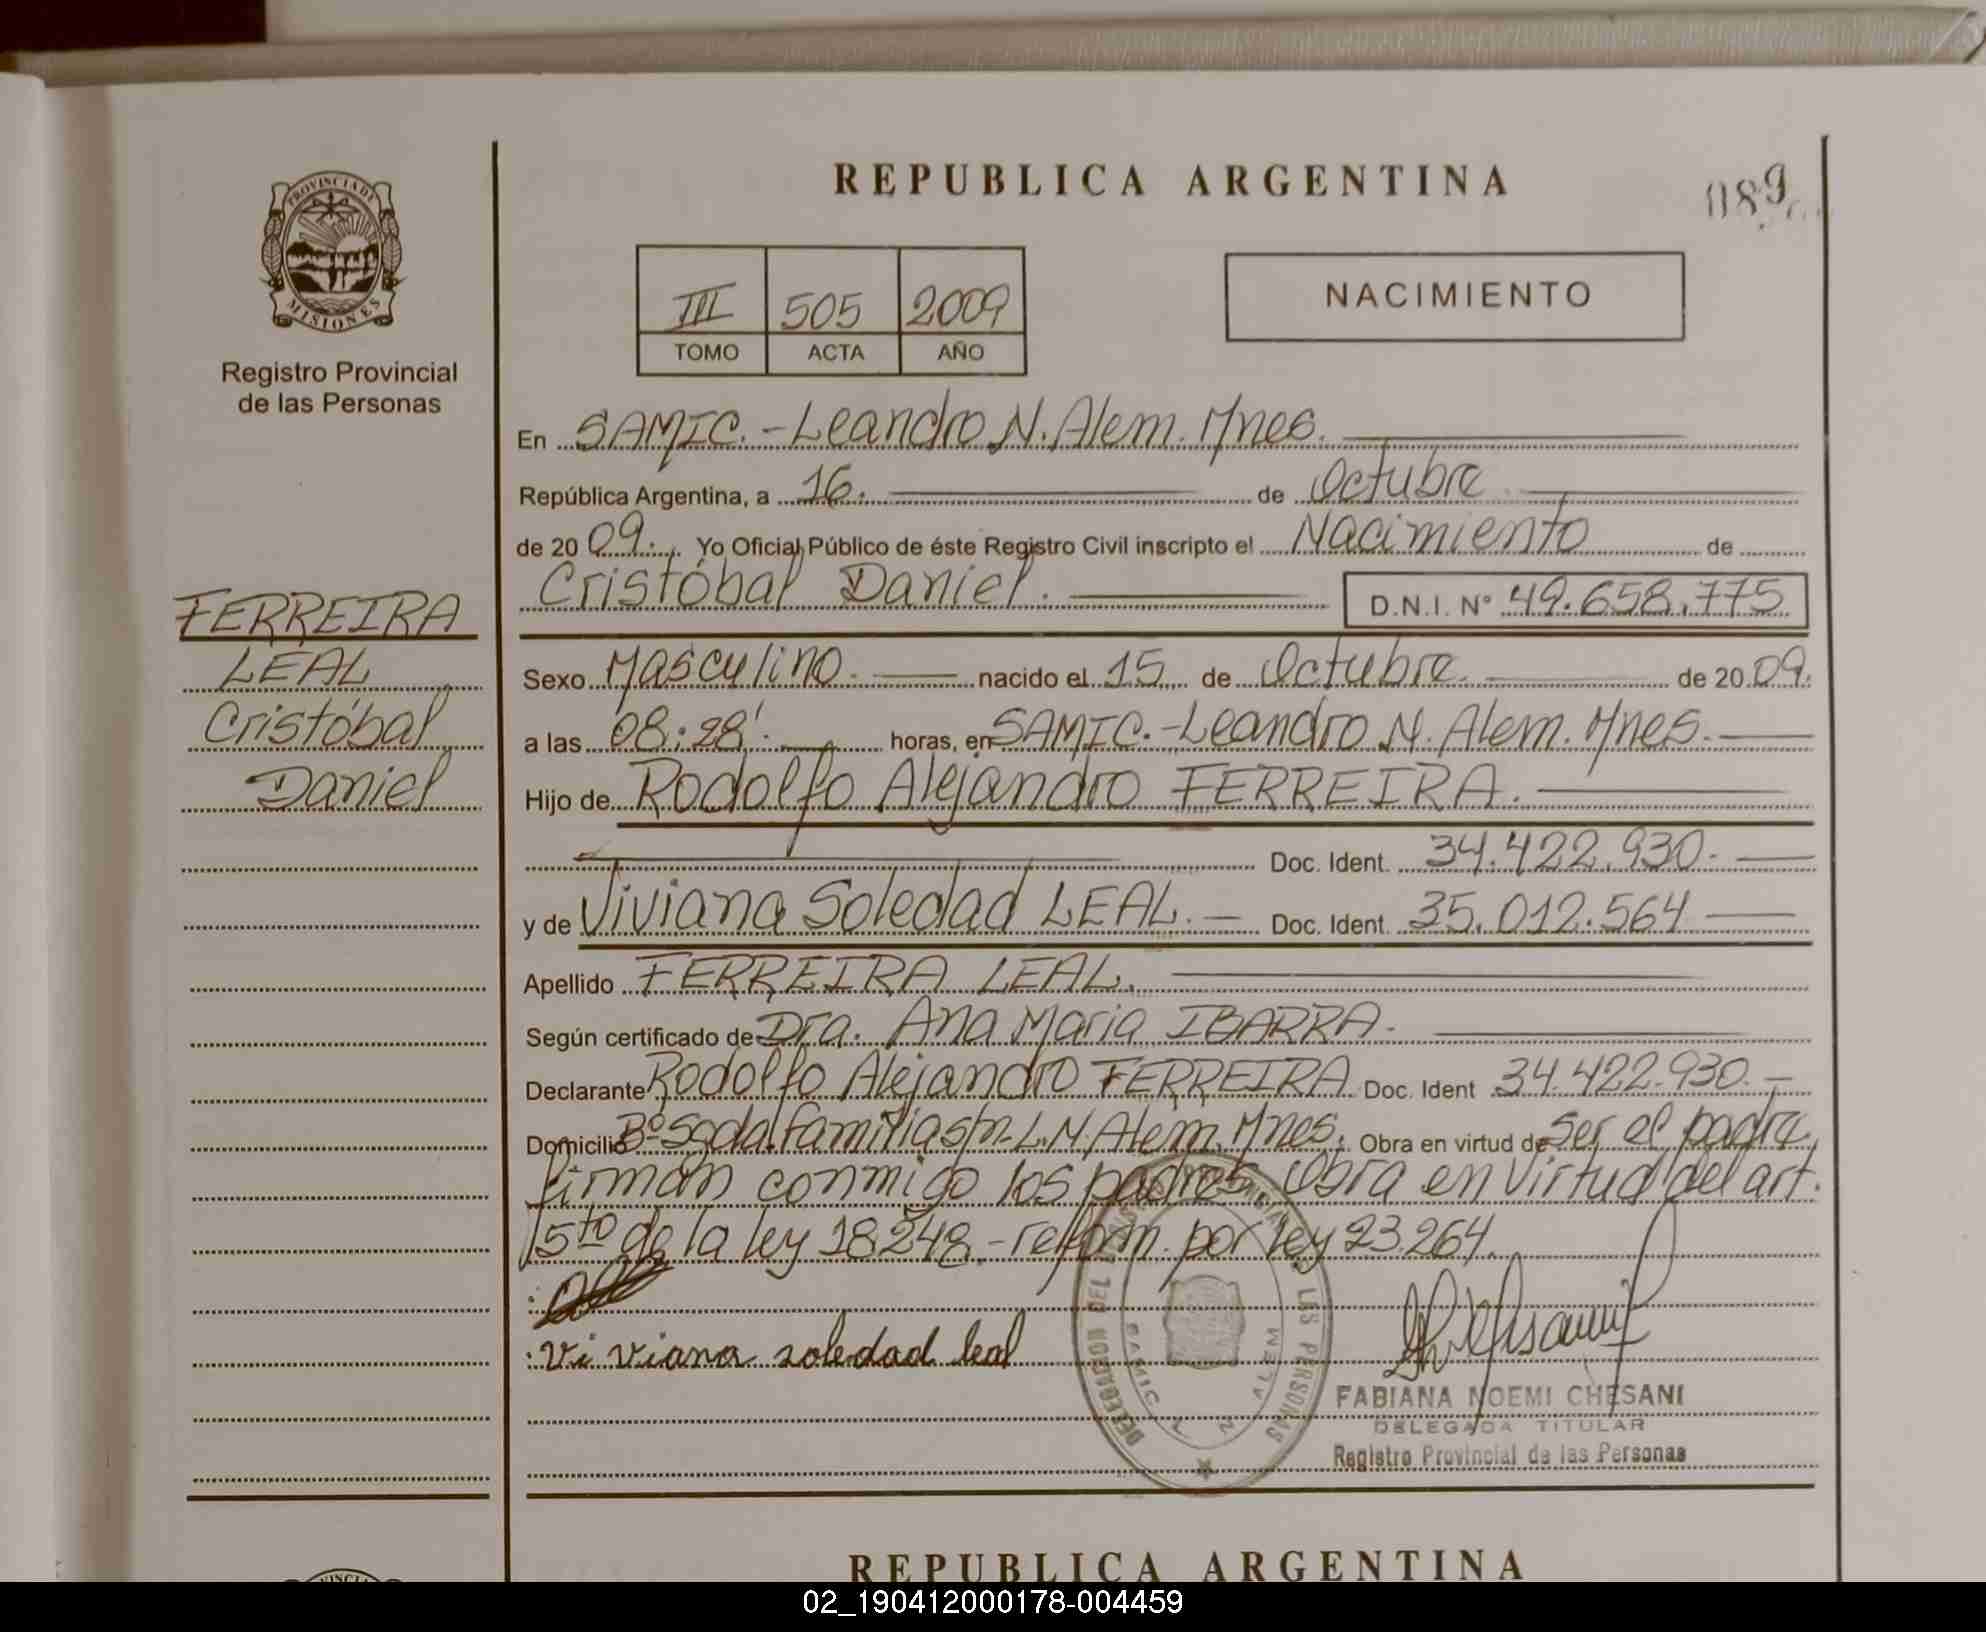 REPUBLICA ARGENTINA
089
PROVINCIA DE
MISIONES
Registro Provincial
de las Personas
III 505 2009
TOMO ACTA AÑO
NACIMIENTO
En SAMIC.-Leandro N. Alem. Mnes.
República Argentina, a 16. de Octubre
de 20 09. Yo Oficial Público de éste Registro Civil inscripto el Nacimiento de
Cristóbal Daniel. D.N.I. N° 49.658.775
FERREIRA
LEAL
Cristóbal
Daniel
Sexo Masculino. nacido el 15 de Octubre. de 20 09.
a las 08:28'. horas, en SAMIC.-Leandro N. Alem. Mnes.
Hijo de Rodolfo Alejandro FERREIRA.
Doc. Ident. 34.422.930.
y de Viviana Soledad LEAL. Doc. Ident. 35.012.564
Apellido FERREIRA LEAL.
Según certificado de Dra. Ana Maria IBARRA.
Declarante Rodolfo Alejandro FERREIRA. Doc. Ident 34.422.930.
Domicilio B° Sgda. Familia s/n-L.N. Alem. Mnes. Obra en virtud de ser el padre.
firman conmigo los padres. Obra en virtud del art.
5to de la ley 18248.-reform. por ley 23.264.
Viviana soledad leal
LAS PERSONAS
SAMIC L N ALEM
FABIANA NOEMI CHESANI
DELEGADA TITULAR
Registro Provincial de las Personas
REPUBLICA ARGENTINA
02_190412000178-004459